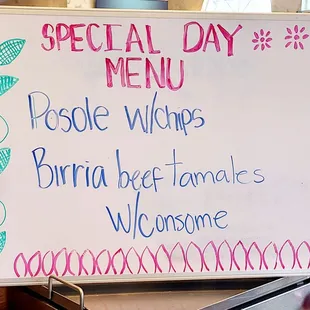 SPECIAL DAY
MENU
Posole w/chips
Birria beef tamales
w/consome